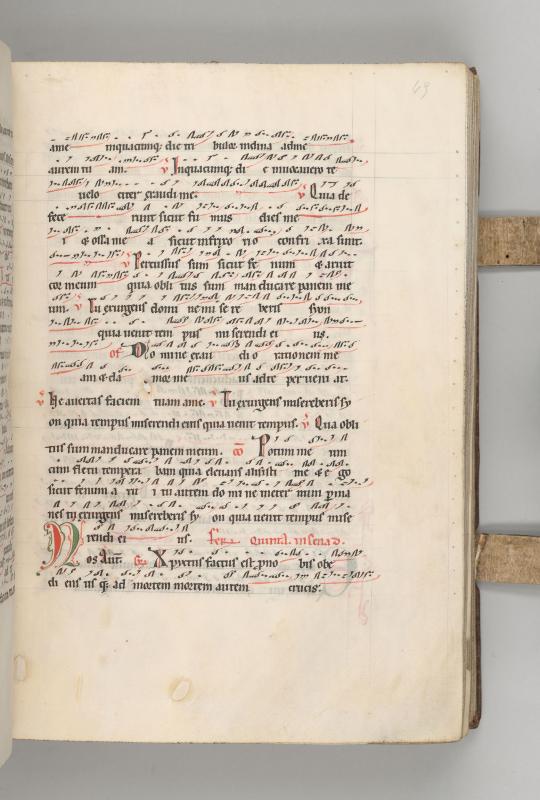 63
ame inquacumq; die tri bulor inclina ad me
aurem tu am. v Inquacumq; di e inuocauero te
uelo citer exaudi me. v Quia de
fece runt sicut fu mus dies mei
& ossa me a sicut infrixo rio confri xa sunt.
v Percussus sum sicut fe num & aruit
cor meum quia obli tus sum manducare panem me
um. v Tu exurgens domi ne mi se re beris syon
quia uenit tem pus miserendi ei us.
of Do mi ne exau di o rationem me
am & cla mor me us ad te per ueni at.
v Ne auertas faciem tuam a me. v Tu exurgens misereberis sy
on quia tempus miserendi eius quia uenit tempus. v Quia obli
tus sum manducare panem meum. co Potum me um
cum fletu tempera bam quia eleuans allisisti me & e go
sicut fenum a ru i tu autem do mi ne in eter num perma
nes tu exurgens misereberis sy on quia uenit tempus mise
rendi ei us. Feria quinta. in cena d.
Nos Aut. Gr Xpictus factus est pro no bis obe
di ens us q; ad mortem mortem autem crucis.